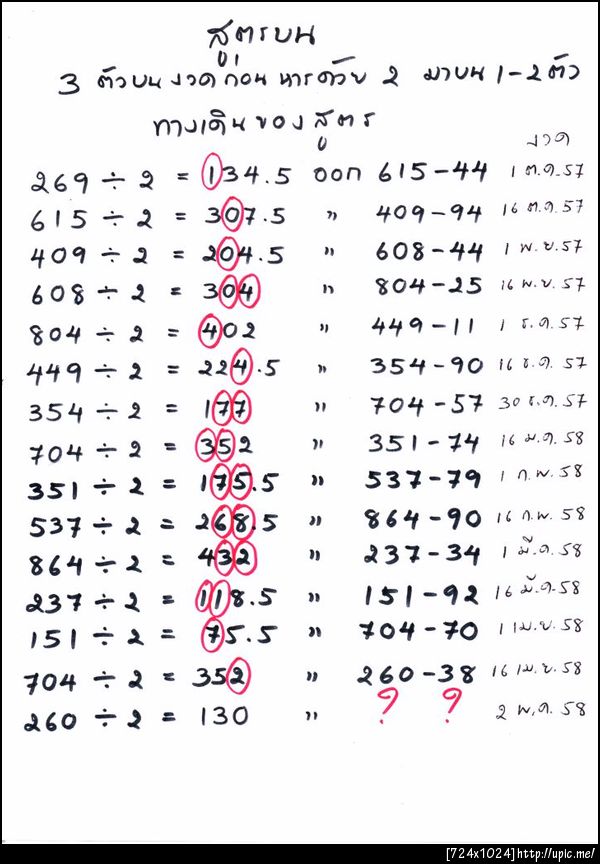 สูตรบน
3 ตัวบน งวดก่อน หารด้วย 2 มาบน 1-2 ตัว
ทางเดินของสูตร
งวด
269 ÷ 2 = 134.5 ออก 615-44 1 ต.ค.57
615 ÷ 2 = 307.5 " 409-94 16 ต.ค.57
409 ÷ 2 = 204.5 " 608-44 1 พ.ย.57
608 ÷ 2 = 304 " 804-25 16 พ.ย.57
804 ÷ 2 = 402 " 449-11 1 ธ.ค.57
449 ÷ 2 = 224.5 " 354-90 16 ธ.ค.57
354 ÷ 2 = 177 " 704-57 30 ธ.ค.57
704 ÷ 2 = 352 " 351-74 16 ม.ค.58
351 ÷ 2 = 175.5 " 537-79 1 ก.พ.58
537 ÷ 2 = 268.5 " 864-90 16 ก.พ.58
864 ÷ 2 = 432 " 237-34 1 มี.ค.58
237 ÷ 2 = 118.5 " 151-92 16 มี.ค.58
151 ÷ 2 = 75.5 " 704-70 1 เม.ย.58
704 ÷ 2 = 352 " 260-38 16 เม.ย.58
260 ÷ 2 = 130 " ? ? 2 พ.ค.58
[724x1024]http://upic.me/